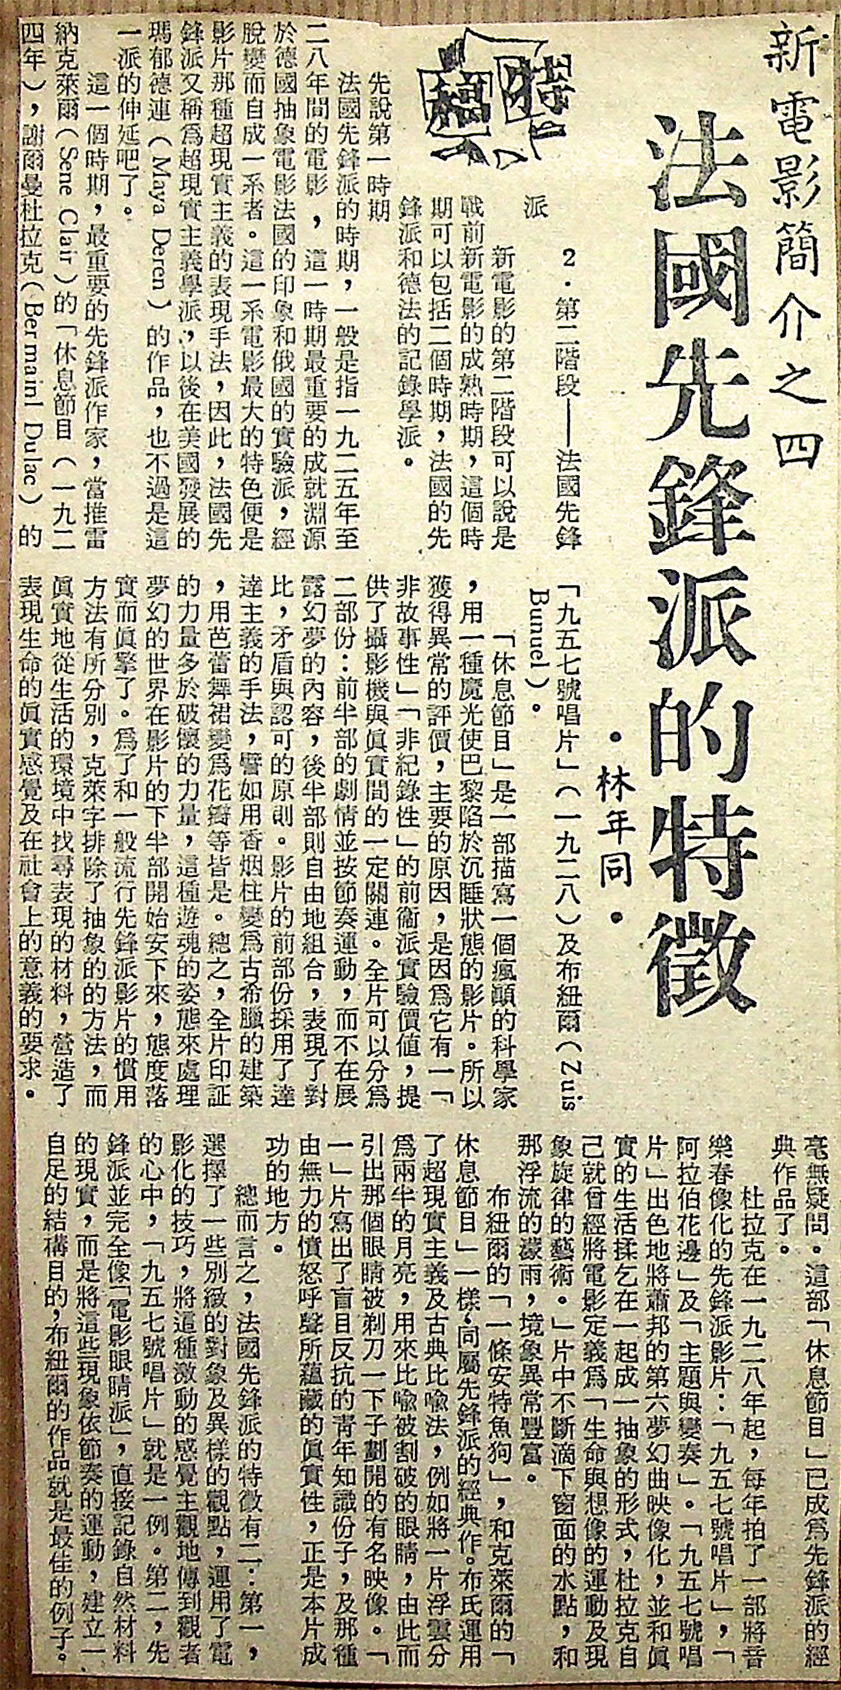 新電影簡介之四
法國先鋒派的特徵
•林年同•
特稿
2．第二階段——法國先鋒
派
新電影的第二階段可以說是
戰前新電影的成熟時期，這個時
期可以包括二個時期，法國的先
鋒派和德法的記錄學派。
先說第一時期
法國先鋒派的時期，一般是指一九二五年至
二八年間的電影，這一時期最重要的成就淵源
於德國抽象電影法國的印象和俄國的實驗派，經
脫變而自成一系者。這一系電影最大的特色便是
影片那種超現實主義的表現手法，因此，法國先
鋒派又稱爲超現實主義學派，以後在美國發展的
瑪郁德連（Maya Deren）的作品，也不過是這
一派的伸延吧了。
這一個時期，最重要的先鋒派作家，當推雷
納克萊爾（Sene Clair）的「休息節目（一九二
四年），謝爾曼杜拉克（Bermainl Dulac）的
「九五七號唱片」（一九二八）及布紐爾（Zuis
Bunuel）。
「休息節目」是一部描寫一個瘋顛的科學家
，用一種魔光使巴黎陷於沉睡狀態的影片。所以
獲得異常的評價，主要的原因，是因爲它有一「
非故事性」「非紀錄性」的前衞派實驗價值，提
供了攝影機與眞實間的一定關連。全片可以分爲
二部份：前半部的劇情並按節奏運動，而不在展
露幻夢的內容，後半部則自由地組合，表現了對
比，矛盾與認可的原則。影片的前部份採用了達
達主義的手法，譬如用香烟柱變爲古希臘的建築
，用芭蕾舞裙變爲花瓣等皆是。總之，全片印証
的力量多於破懷的力量，這種遊魂的姿態來處理
夢幻的世界在影片的下半部開始安下來，態度落
實而眞摯了。爲了和一般流行先鋒派影片的慣用
方法有所分別，克萊字排除了抽象的的方法，而
眞實地從生活的環境中找尋表現的材料，營造了
表現生命的眞實感覺及在社會上的意義的要求。
毫無疑問。這部「休息節目」已成爲先鋒派的經
典作品了。
杜拉克在一九二八年起，每年拍了一部將音
樂春像化的先鋒派影片：「九五七號唱片」，「
阿拉伯花邊」及「主題與變奏」。「九五七號唱
片」出色地將蕭邦的第六夢幻曲映像化，並和眞
實的生活揉乞在一起成一抽象的形式，杜拉克自
己就曾經將電影定義爲「生命與想像的運動及現
象旋律的藝術。」片中不斷滴下窗面的水點，和
那浮流的濛雨，境象異常豐富。
布紐爾的「一條安特魚狗」，和克萊爾的「
休息節目」一樣，同屬先鋒派的經典作。布氏運用
了超現實主義及古典比喩法，例如將一片浮雲分
爲兩半的月亮，用來比喩被割破的眼睛，由此而
引出那個眼睛被剃刀一下子劃開的有名映像。「
一」片寫出了盲目反抗的青年知識份子，及那種
由無力的憤怒呼聲所蘊藏的眞實性，正是本片成
功的地方。
總而言之，法國先鋒派的特徵有二：第一，
選擇了一些別緻的對象及異樣的觀點，運用了電
影化的技巧，將這種激動的感覺主觀地傳到觀者
的心中，「九五七號唱片」就是一例。第二，先
鋒派並完全像「電影眼睛派」，直接記錄自然材料
的現實，而是將這些現象依節奏的運動，建立一
自足的結構目的，布紐爾的作品就是最佳的例子。